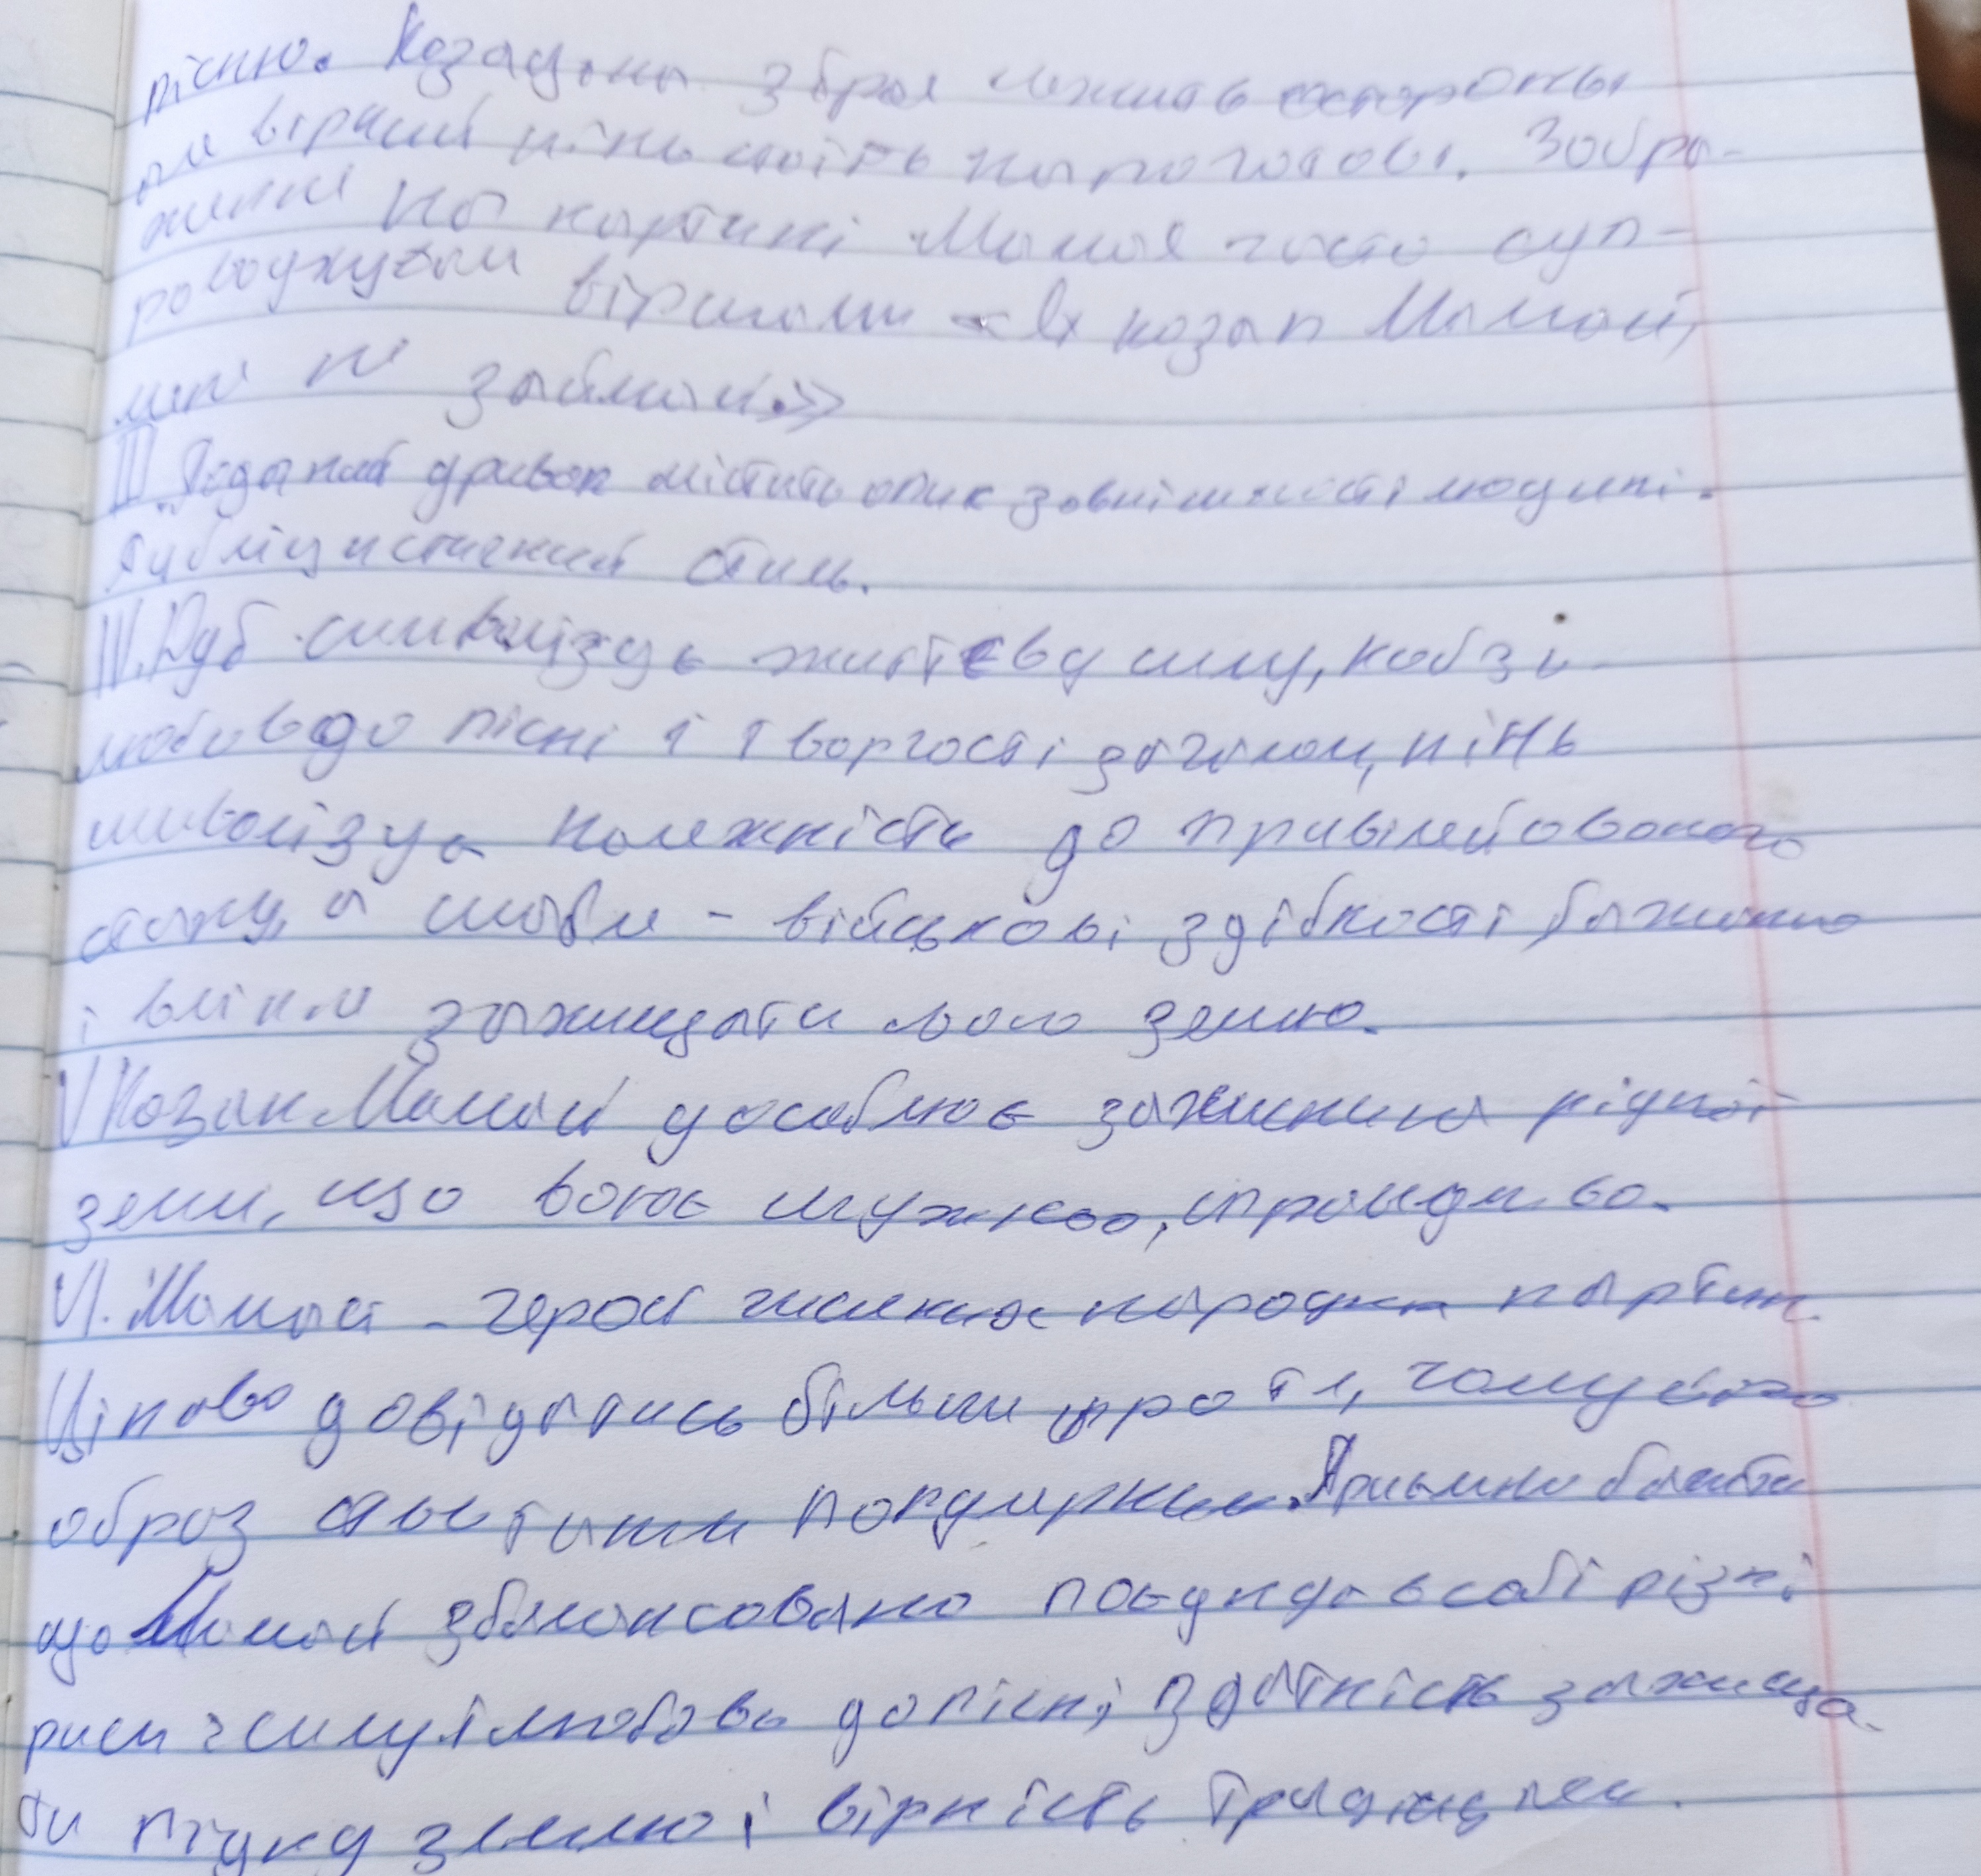 пісню. Козацька зброя лежить осторонь,
але вірний кінь стоїть напоготові. Зобра-
ження на картині Мамая часто суп-
роводжували віршами «Я козак Мамай,
мене не займай.»
III. Поданий уривок містить опис зовнішності людини.
Публіцистичний стиль.
IV. Дуб символізує життєву силу, кобза
любов до пісні і творчості загалом, кінь
символізує належність до привілейованого
стану, а шабля - військові здібності, бажання
і вміння захищати свою землю.
V Козак Мамай уособлює захисника рідної
землі, що воює мужньо, справедливо.
VI. Мамай - герой численних народних картин.
Цікаво довідатись більше про те, чому його
образ став таким популярним. Приємно бачити
що Мамай збалансовано поєднує в собі різні
риси: силу і любов до пісні, здатність захища-
ти рідну землю і вірність традиціям.